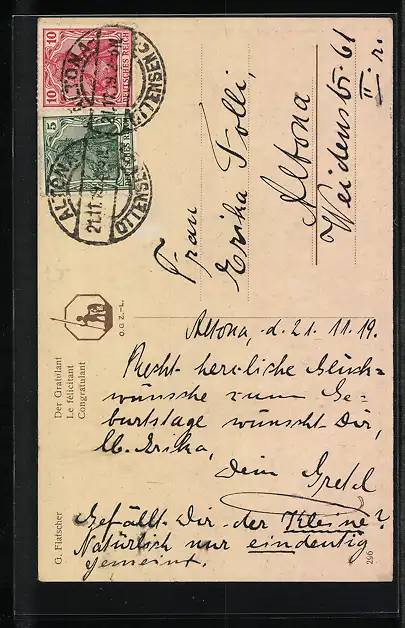 10
10
DEUTSCHES REICH
5
ALTONA
21.11.19
OTTENSEN
ALTONA
21.11.19
OTTENSEN
Frau
Erika Tolli,
Altona
Weidenstr. 61
II. r.
Der Gratulant
Le félicitant
Congratulant
O.G.Z.-L.
G. Flatscher
296
Altona, d. 21. 11. 19.
Recht herzliche Glück=
wünsche zum Ge-
burtstage wünscht Dir,
lb. Erika,
Dein Gretel
Gefällt Dir der Kleine?
Natürlich nur eindeutig
gemeint.